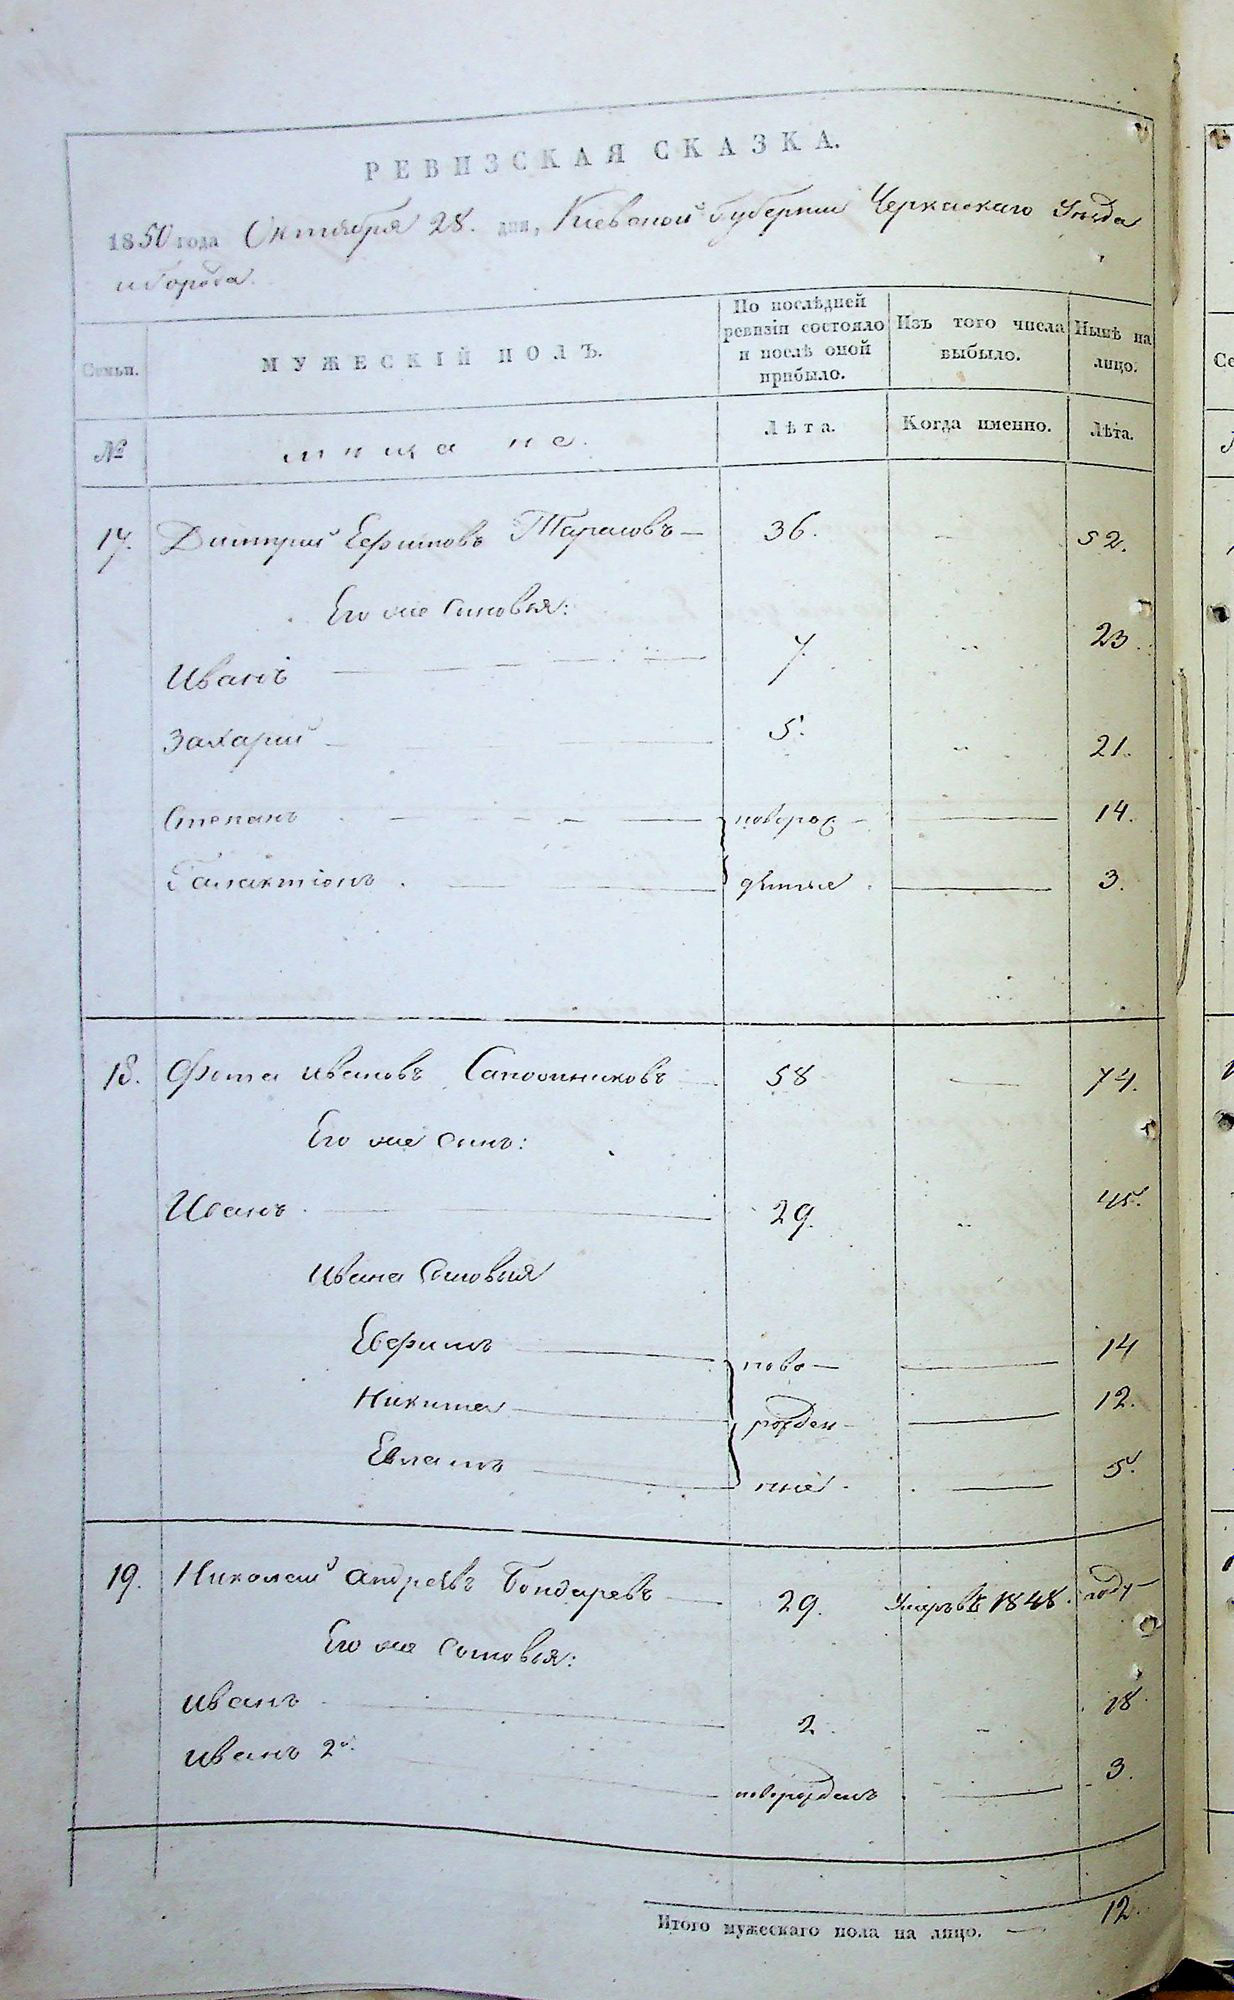 РЕВИЗСКАЯ СКАЗКА.
1850 года Октября 28. дня, Кіевской Губерніи Черкаскаго Уѣзда
и города
Семьи. МУЖЕСКІЙ ПОЛЪ. По послѣдней ревизіи состояло и послѣ оной прибыло. Изъ того числа выбыло. Нынѣ на лицо.
№ мѣщане. Лѣта. Когда именно. Лѣта.
17. Дмитрий Ефимовъ Тарасовъ — 36. — 52.
Его же сыновья:
Иванъ 7. „ 23.
Захарий 5. „ 21.
Степанъ новорож- 14.
Галактіонъ денные 3.
18. Фома Ивановъ Сапожниковъ 58 — 74.
Его же сынъ:
Иванъ 29. „ 45.
Ивана сыновья
Евфимъ ново- 14
Никита рожден- 12.
Евлампъ ные 5.
19. Николай Андреевъ Бондаревъ 29. Умеръ въ 1848. году
Его же сыновья:
Иванъ 2. „ 18.
Иванъ 2й новорожденъ 3.
Итого мужескаго пола на лицо. — 12.